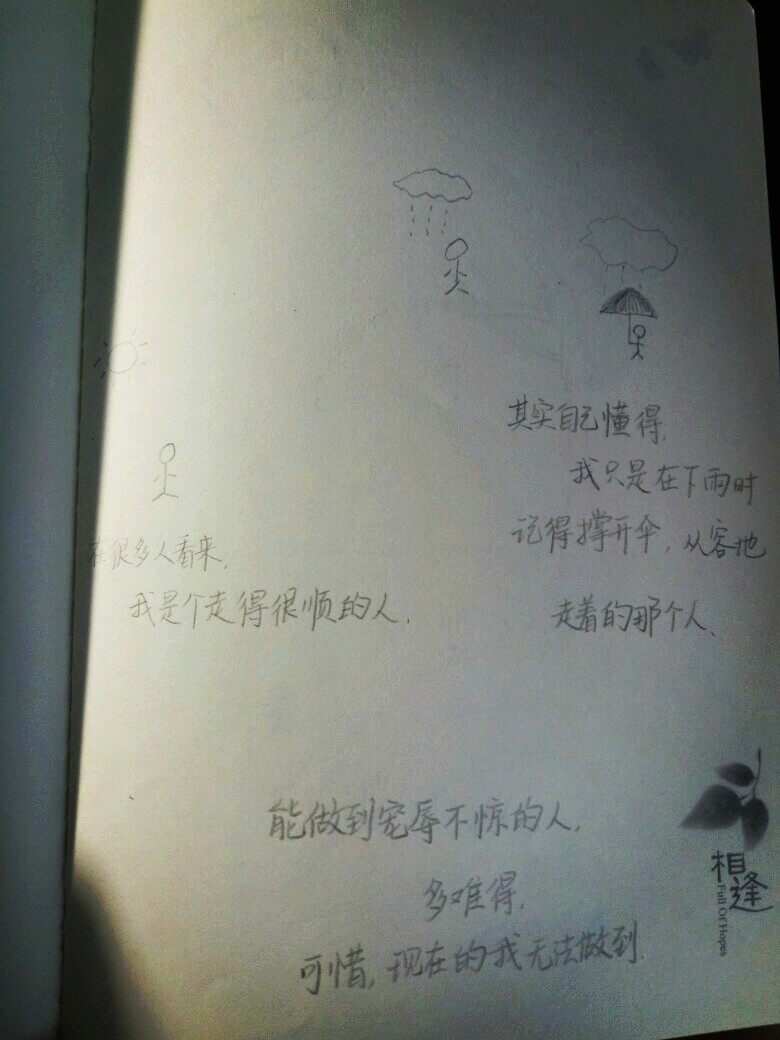 在很多人看来,
我是个走得很顺的人.
其实自己懂得,
我只是在下雨时
记得撑开伞,从容地
走着的那个人、
能做到宠辱不惊的人,
多难得,
可惜,现在的我无法做到.
相逢
Full Of Hopes